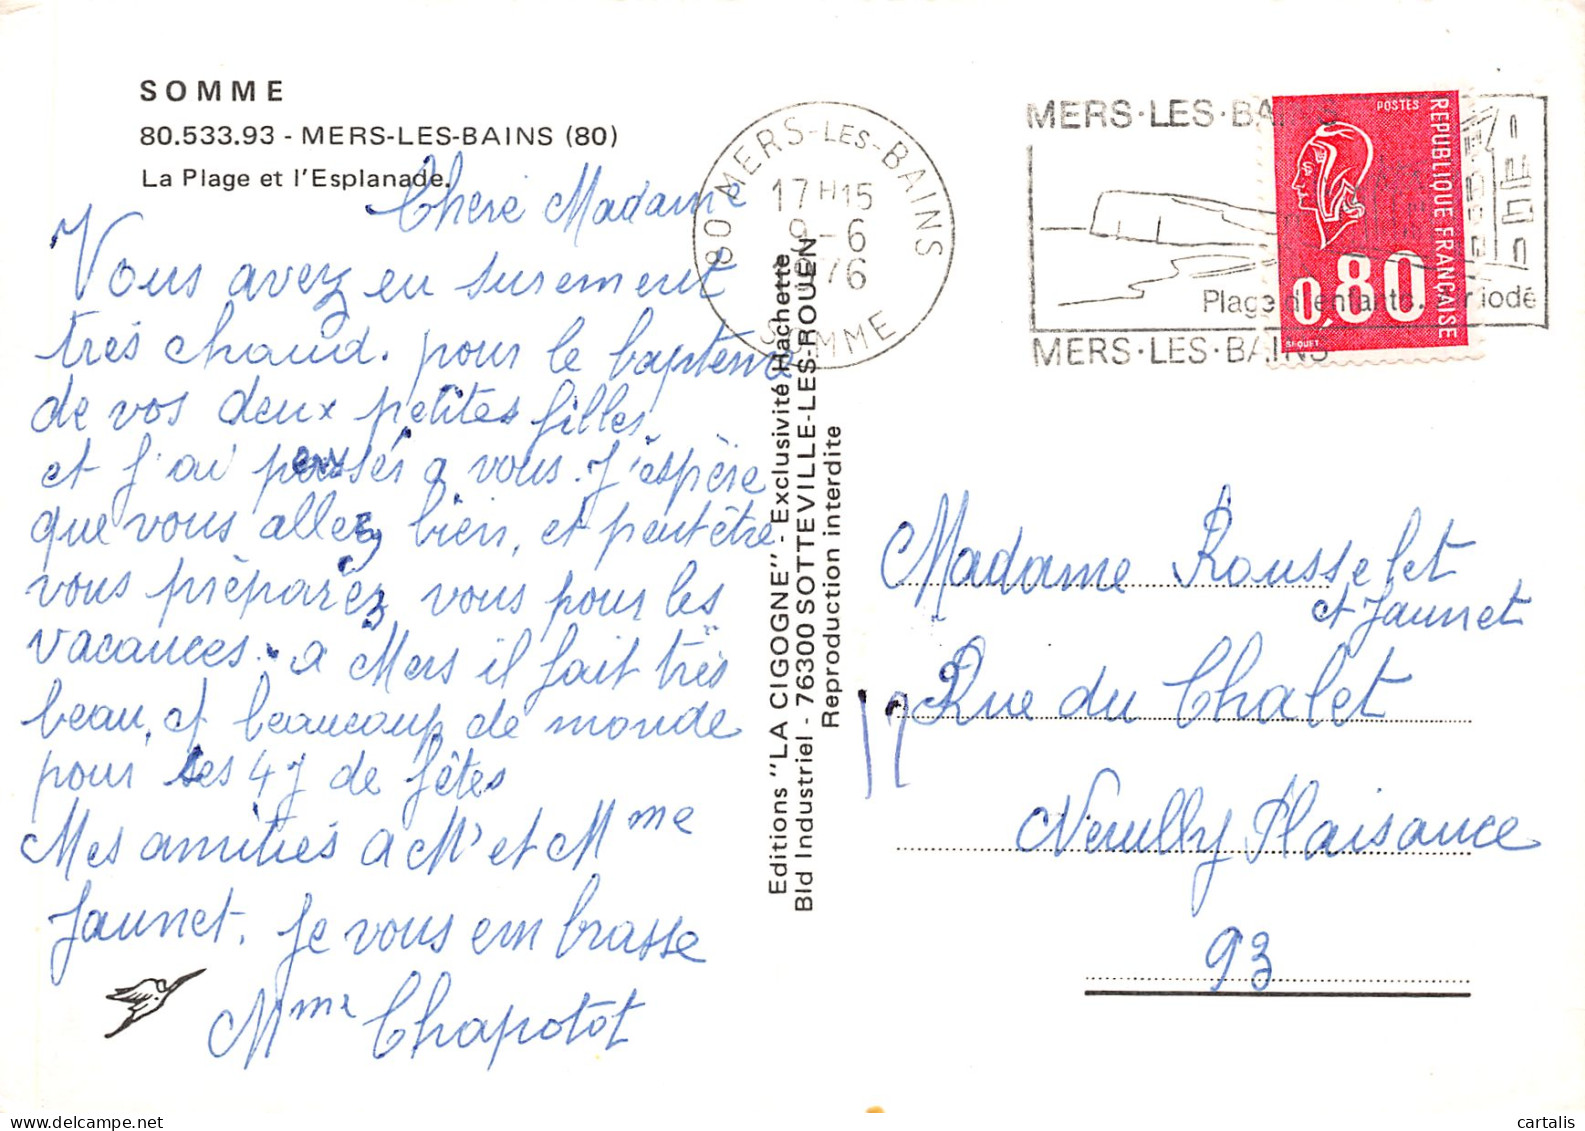 SOMME
80.533.93 - MERS-LES-BAINS (80)
La Plage et l'Esplanade.
Chère Madame
Vous avez eu surement
très chaud. pour le baptême
de vos deux petites filles
et j'ai pensés a vous. J'espère
que vous allez bien, et peut être
vous préparez vous pour les
vacances. a Mers il fait très
beau, et beaucoup de monde
pour les 4 J de fêtes
Mes amitiés a Mr et Mme
Jaunet. Je vous embrasse
Mme Chapotot
Editions "LA CIGOGNE" - Exclusivité Hachette
Bld Industriel - 76300 SOTTEVILLE-LES-ROUEN
Reproduction interdite
80 MERS-LES-BAINS
17H15
9-6
1976
SOMME
MERS·LES·BAINS
Plage d'enfants. Air iodé
MERS·LES·BAINS
POSTES
REPUBLIQUE FRANÇAISE
0,80
BEQUET
Madame Rousselet
et Jaunet
19 Rue du Chalet
Neuilly Plaisance
93
cartalis.com